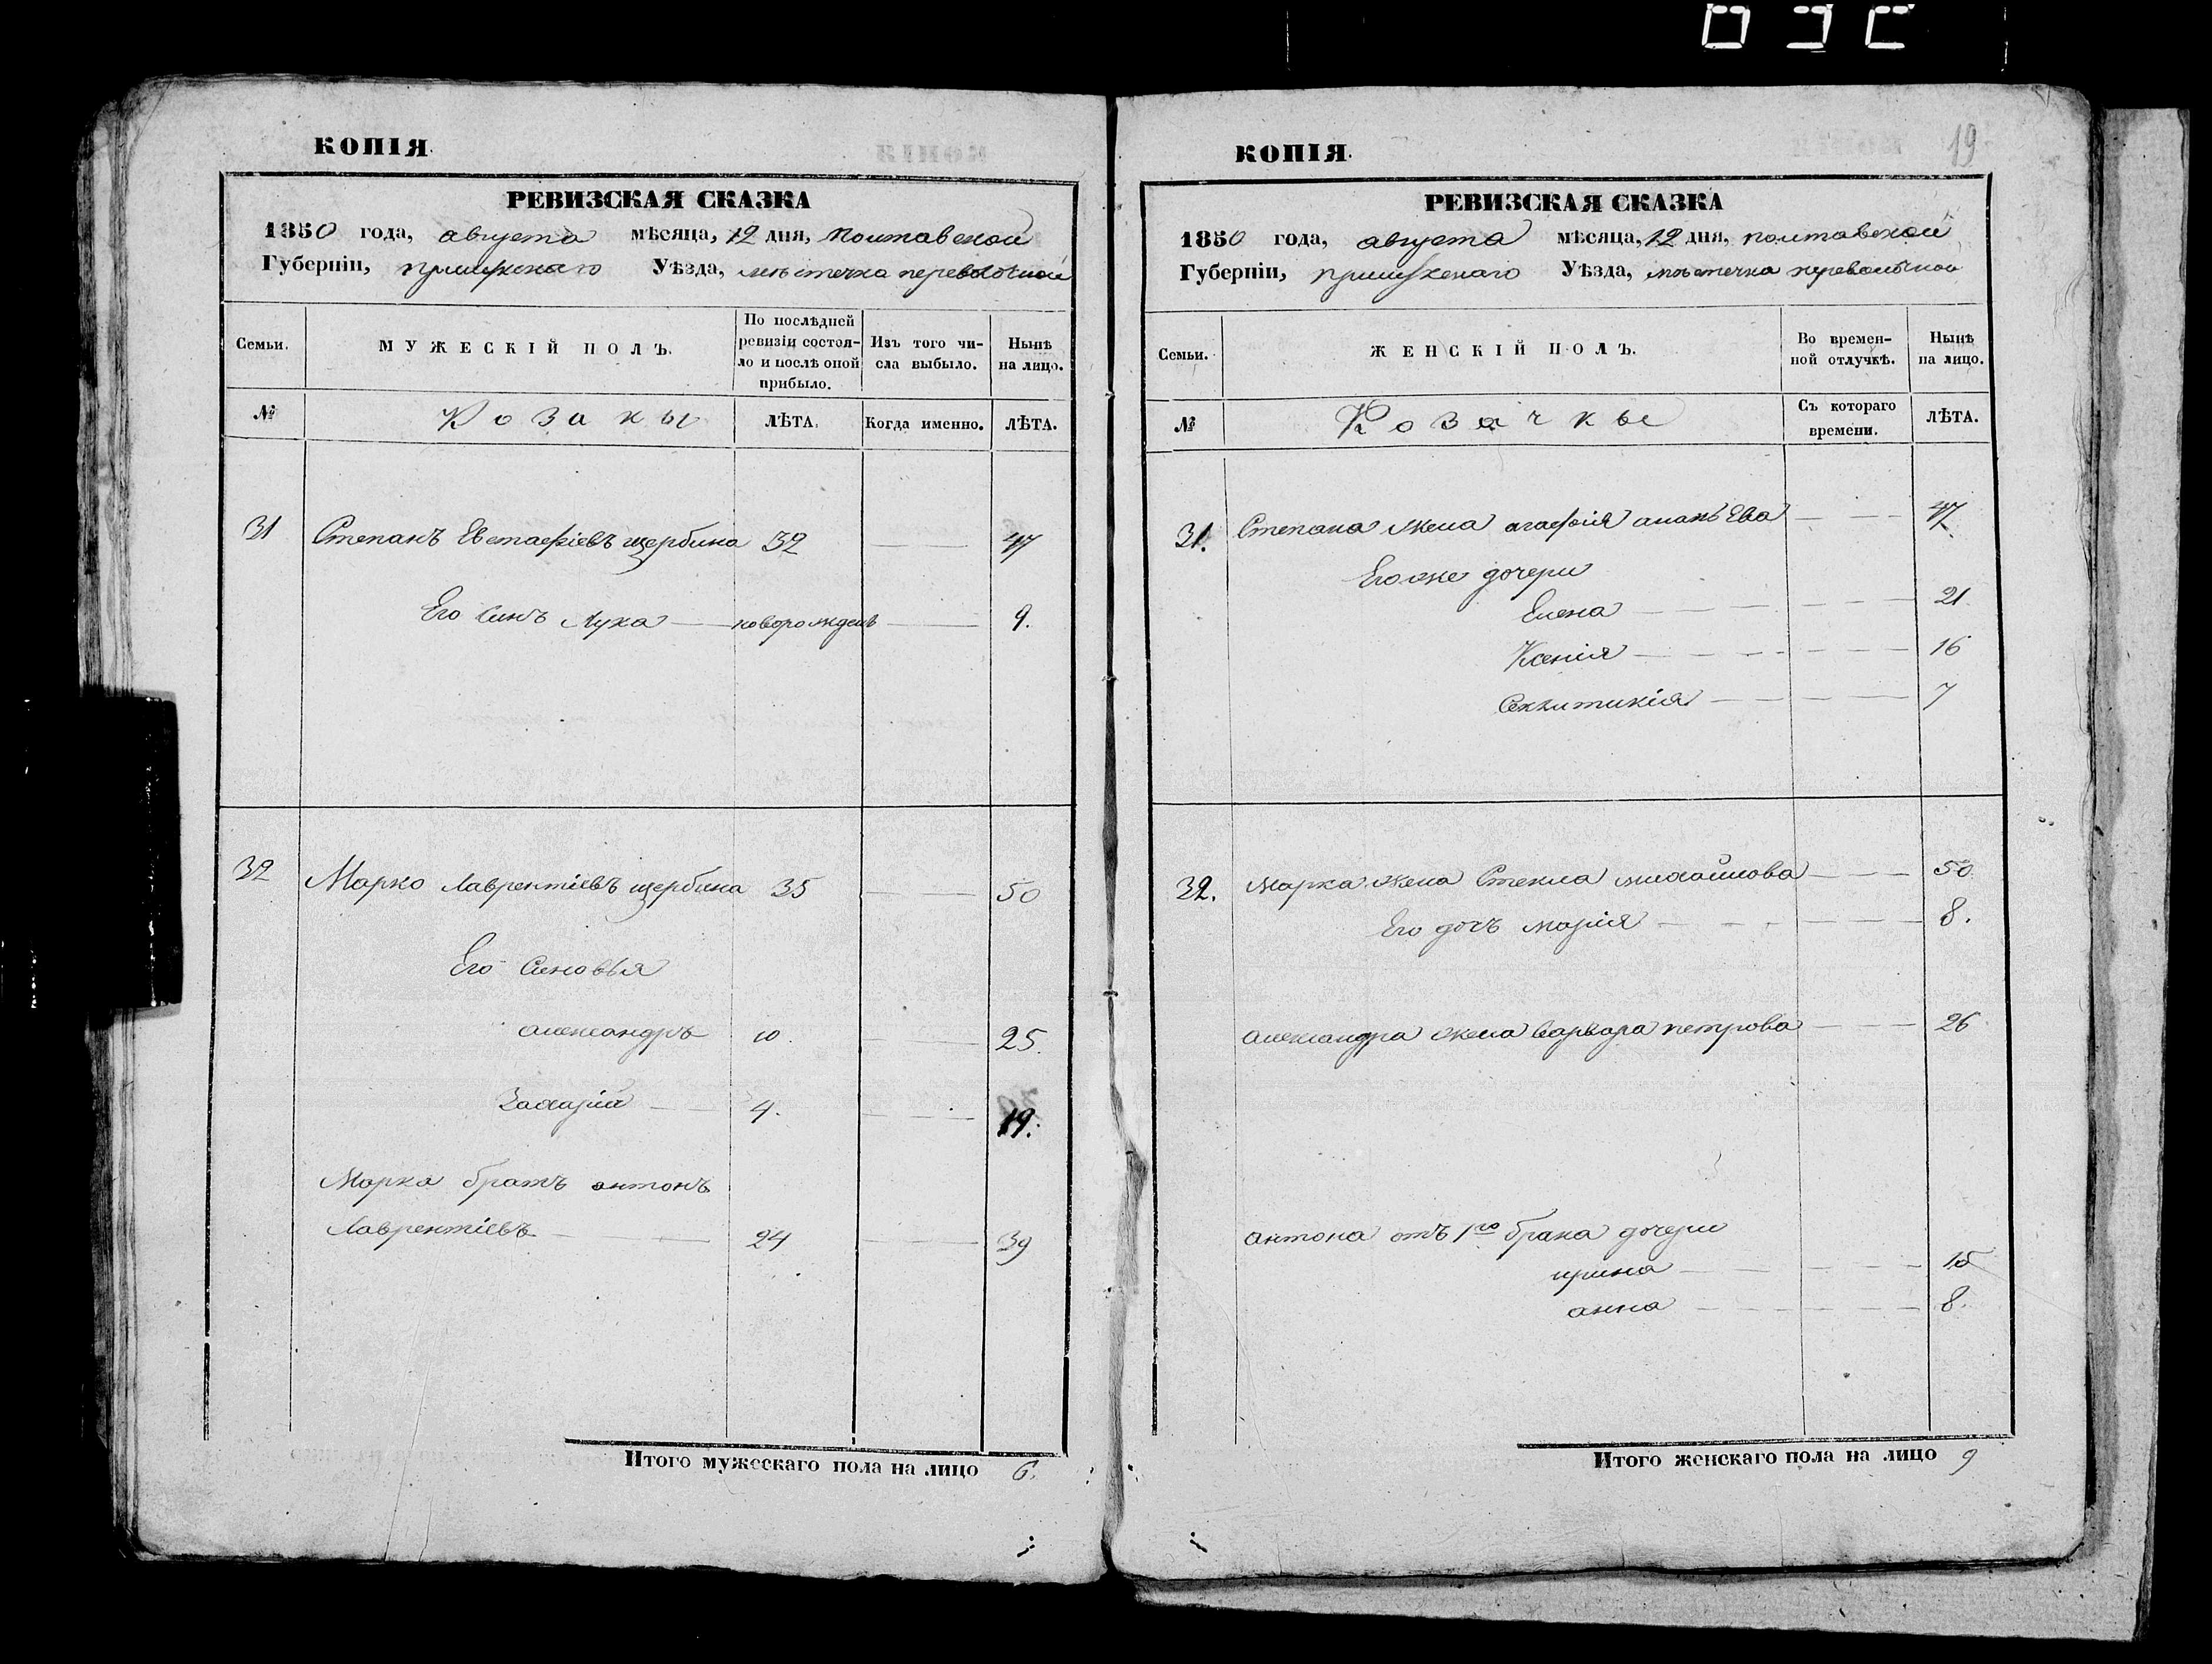 КОПІЯ.
РЕВИЗСКАЯ СКАЗКА
1850 года, августа мѣсяца, 12 дня, Полтавской
Губерніи, прилукскаго Уѣзда, мѣстечка переволочной
Семьи.
МУЖЕСКІЙ ПОЛЪ.
По послѣдней
ревизіи состоя-
ло и послѣ оной
прибыло.
Изъ того чи-
сла выбыло.
Нынѣ
на лицо.
№
Козаки
ЛѢТА.
Когда именно.
ЛѢТА.
31 Степанъ Евстафіевъ щербина 32 47
Его Синъ Лука новорожденъ 9.
32 Марко Лаврентіевъ щербина 35 50
Его Синовья
александръ 10. 25.
Захарій 4. 19.
Марка братъ антонъ
Лаврентіевъ 24 39
Итого мужескаго пола на лицо 6.
КОПІЯ.
19
РЕВИЗСКАЯ СКАЗКА
1850 года, августа мѣсяца, 12 дня, полтавской
Губерніи, прилукскаго Уѣзда, мѣстечка переволочной
Семьи.
ЖЕНСКІЙ ПОЛЪ.
Во времен-
ной отлучкѣ.
Нынѣ
на лицо.
№
Козачкы
Съ котораго
времени.
ЛѢТА.
31. Степана жена агафія ананьева 47
Его же дочери
Елена 21.
Ксенія 16
Секлитикія 7
32. Марка жена Стекла михайлова 50
Его дочъ марія 8.
александра жена варвара петрова 26
антона отъ 1го брака дочери
ирина 15
анна 8.
Итого женскаго пола на лицо 9